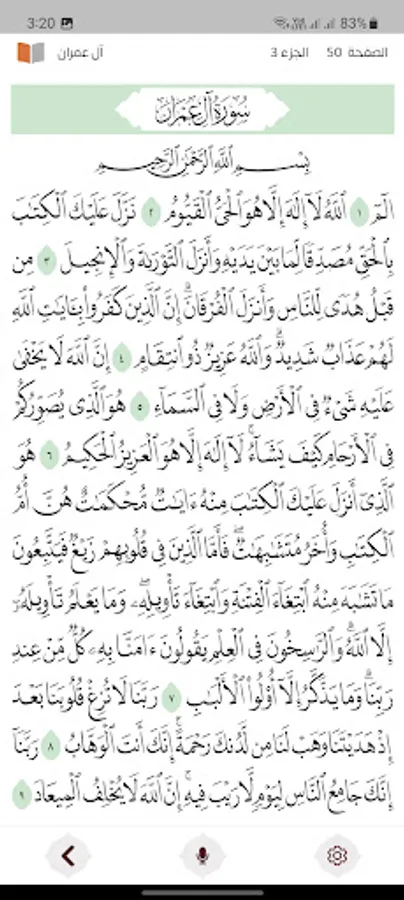 3:20 83%
الصفحة 50 الجزء 3 آل عمران
سُورَةُ آلِ عِمْرَانَ
بِسْمِ ٱللَّهِ ٱلرَّحْمَٰنِ ٱلرَّحِيمِ
الٓمٓ ١ ٱللَّهُ لَآ إِلَٰهَ إِلَّا هُوَ ٱلْحَىُّ ٱلْقَيُّومُ ٢ نَزَّلَ عَلَيْكَ ٱلْكِتَٰبَ
بِٱلْحَقِّ مُصَدِّقًا لِّمَا بَيْنَ يَدَيْهِ وَأَنزَلَ ٱلتَّوْرَىٰةَ وَٱلْإِنجِيلَ ٣ مِن
قَبْلُ هُدًى لِّلنَّاسِ وَأَنزَلَ ٱلْفُرْقَانَ ۗ إِنَّ ٱلَّذِينَ كَفَرُوا۟ بِـَٔايَٰتِ ٱللَّهِ
لَهُمْ عَذَابٌ شَدِيدٌ ۗ وَٱللَّهُ عَزِيزٌ ذُو ٱنتِقَامٍ ٤ إِنَّ ٱللَّهَ لَا يَخْفَىٰ
عَلَيْهِ شَىْءٌ فِى ٱلْأَرْضِ وَلَا فِى ٱلسَّمَآءِ ٥ هُوَ ٱلَّذِى يُصَوِّرُكُمْ
فِى ٱلْأَرْحَامِ كَيْفَ يَشَآءُ ۚ لَآ إِلَٰهَ إِلَّا هُوَ ٱلْعَزِيزُ ٱلْحَكِيمُ ٦ هُوَ
ٱلَّذِىٓ أَنزَلَ عَلَيْكَ ٱلْكِتَٰبَ مِنْهُ ءَايَٰتٌ مُّحْكَمَٰتٌ هُنَّ أُمُّ
ٱلْكِتَٰبِ وَأُخَرُ مُتَشَٰبِهَٰتٌ ۖ فَأَمَّا ٱلَّذِينَ فِى قُلُوبِهِمْ زَيْغٌ فَيَتَّبِعُونَ
مَا تَشَٰبَهَ مِنْهُ ٱبْتِغَآءَ ٱلْفِتْنَةِ وَٱبْتِغَآءَ تَأْوِيلِهِۦ ۗ وَمَا يَعْلَمُ تَأْوِيلَهُۥٓ
إِلَّا ٱللَّهُ ۗ وَٱلرَّٰسِخُونَ فِى ٱلْعِلْمِ يَقُولُونَ ءَامَنَّا بِهِۦ كُلٌّ مِّنْ عِندِ
رَبِّنَا ۗ وَمَا يَذَّكَّرُ إِلَّآ أُو۟لُوا۟ ٱلْأَلْبَٰبِ ٧ رَبَّنَا لَا تُزِغْ قُلُوبَنَا بَعْدَ
إِذْ هَدَيْتَنَا وَهَبْ لَنَا مِن لَّدُنكَ رَحْمَةً ۚ إِنَّكَ أَنتَ ٱلْوَهَّابُ ٨ رَبَّنَآ
إِنَّكَ جَامِعُ ٱلنَّاسِ لِيَوْمٍ لَّا رَيْبَ فِيهِ ۚ إِنَّ ٱللَّهَ لَا يُخْلِفُ ٱلْمِيعَادَ ٩